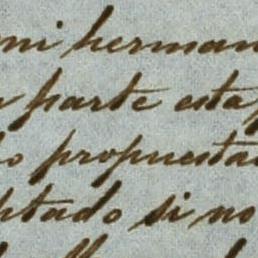 mi herman
parte esta
o propuesta
ptado si no